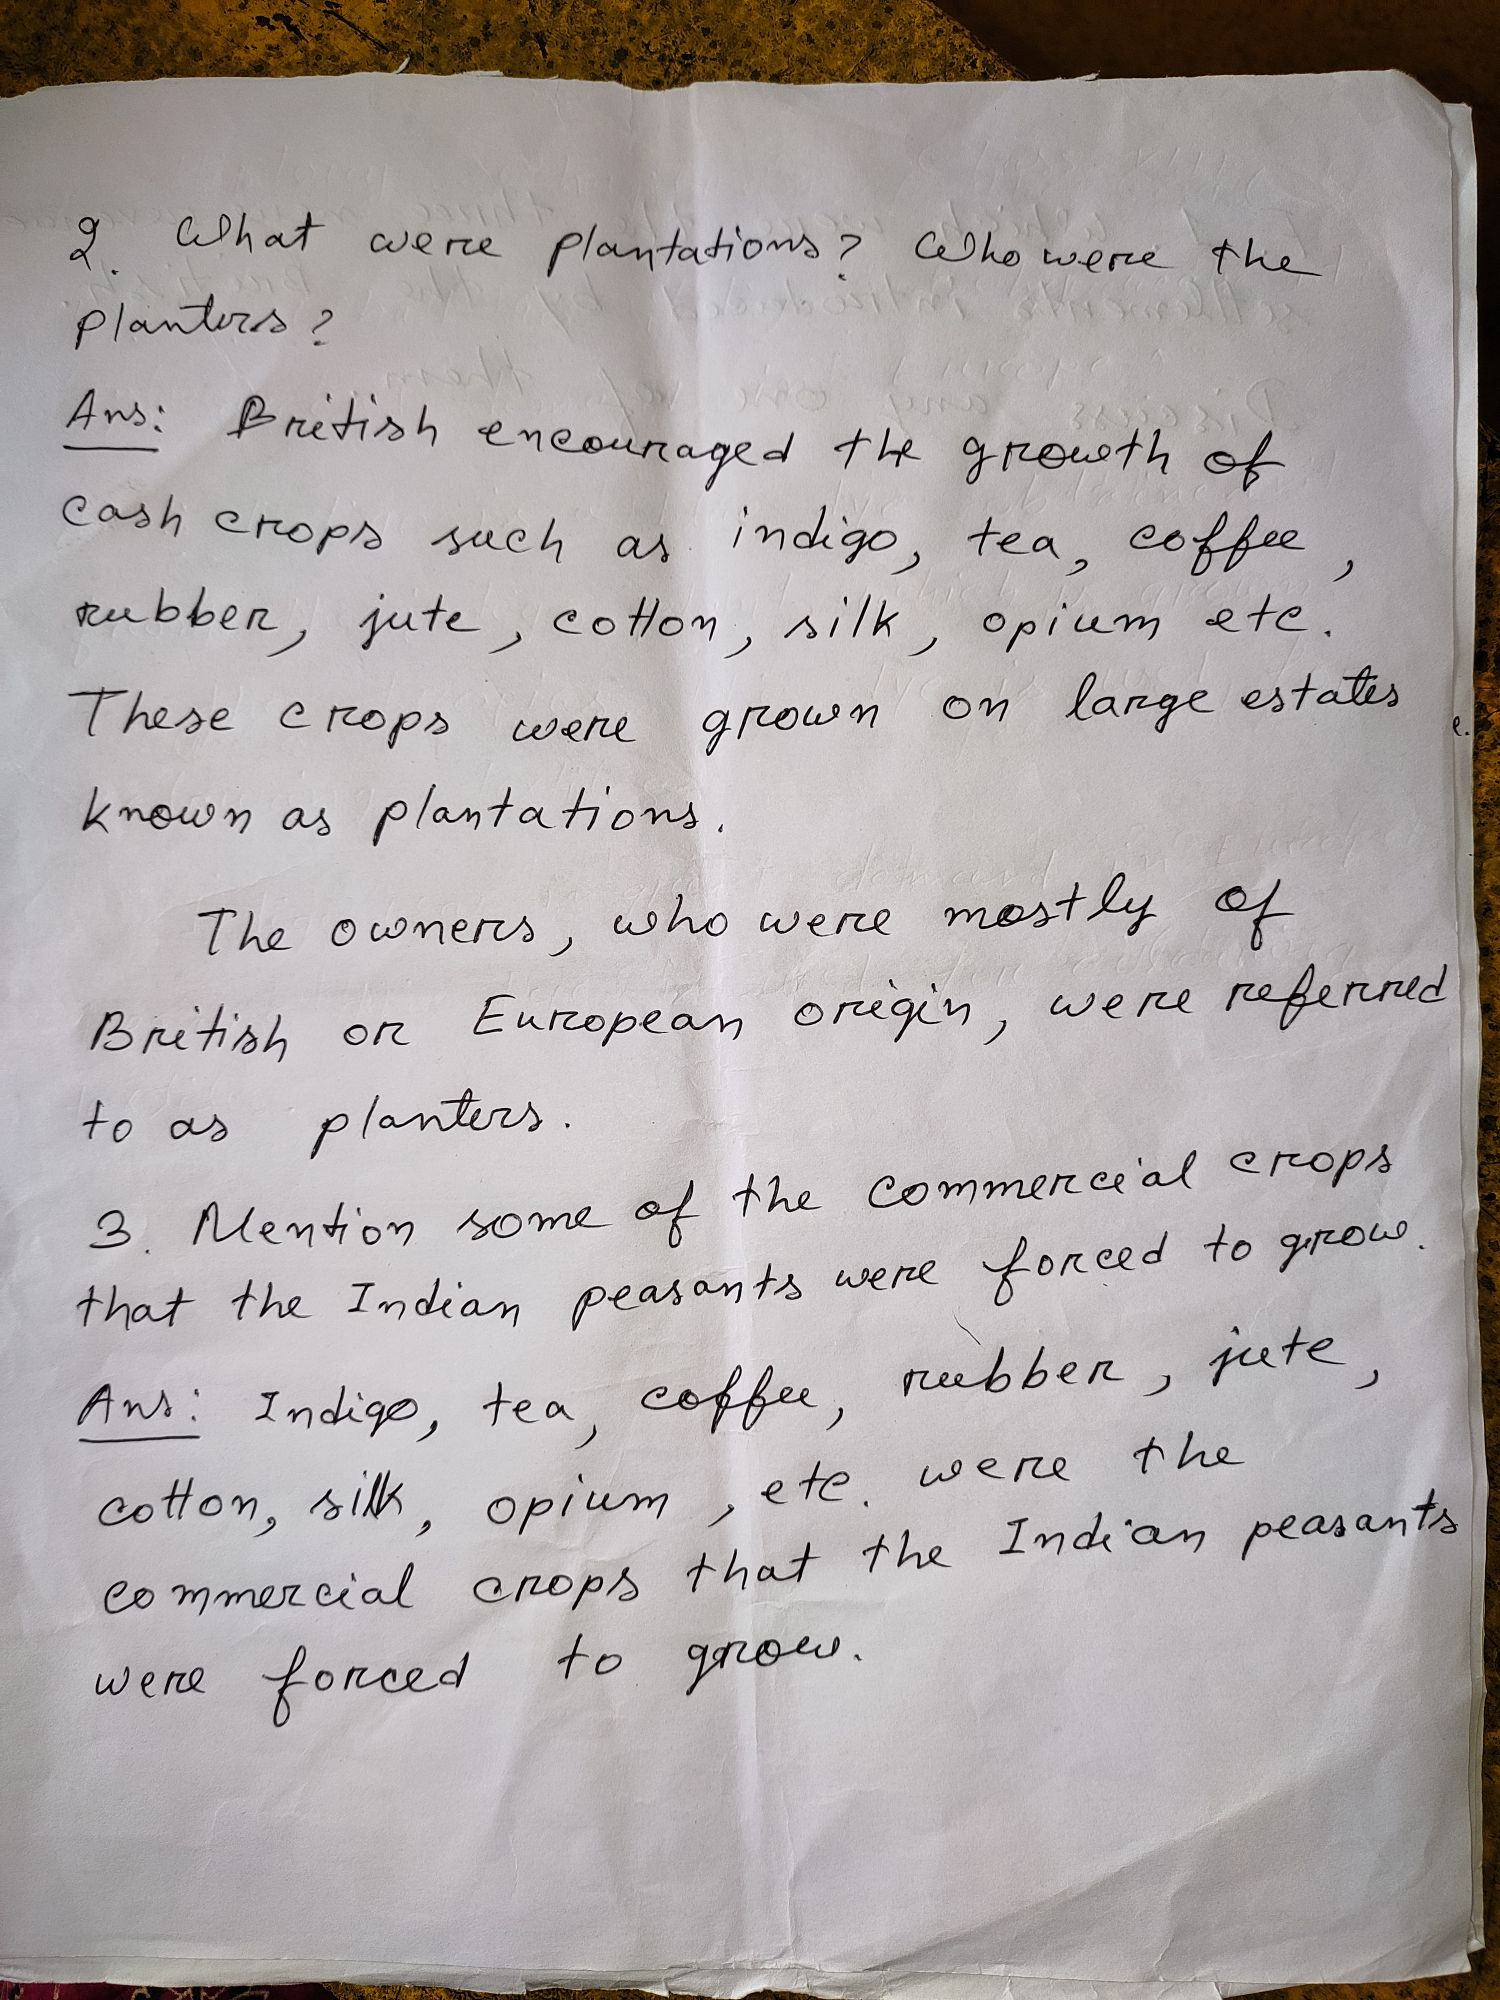 2. What were plantations? Who were the
planters?
Ans: British encouraged the growth of
cash crops such as indigo, tea, coffee,
rubber, jute, cotton, silk, opium etc.
These crops were grown on large estates
known as plantations.
The owners, who were mostly of
British or European origin, were referred
to as planters.
3. Mention some of the commercial crops
that the Indian peasants were forced to grow.
Ans: Indigo, tea, coffee, rubber, jute,
cotton, silk, opium, etc. were the
commercial crops that the Indian peasants
were forced to grow.